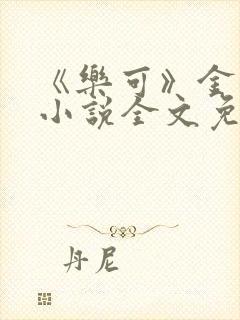 《樂可》金
小說全文免
丹尼